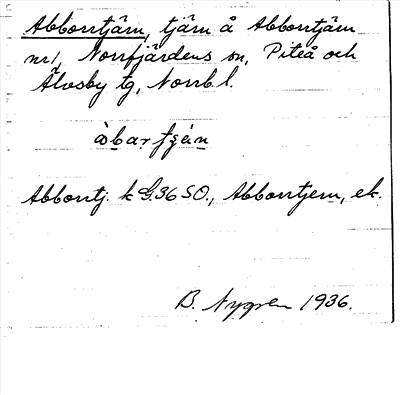 Abborrtjärn, tjärn å Abborrtjärn
nr 1, Norrfjärdens sn, Piteå och
Älvsby tg, Norrb. l.
Abborrtj. k G.36 SO., Abborrtjern, ek.
B. Nygren 1936.